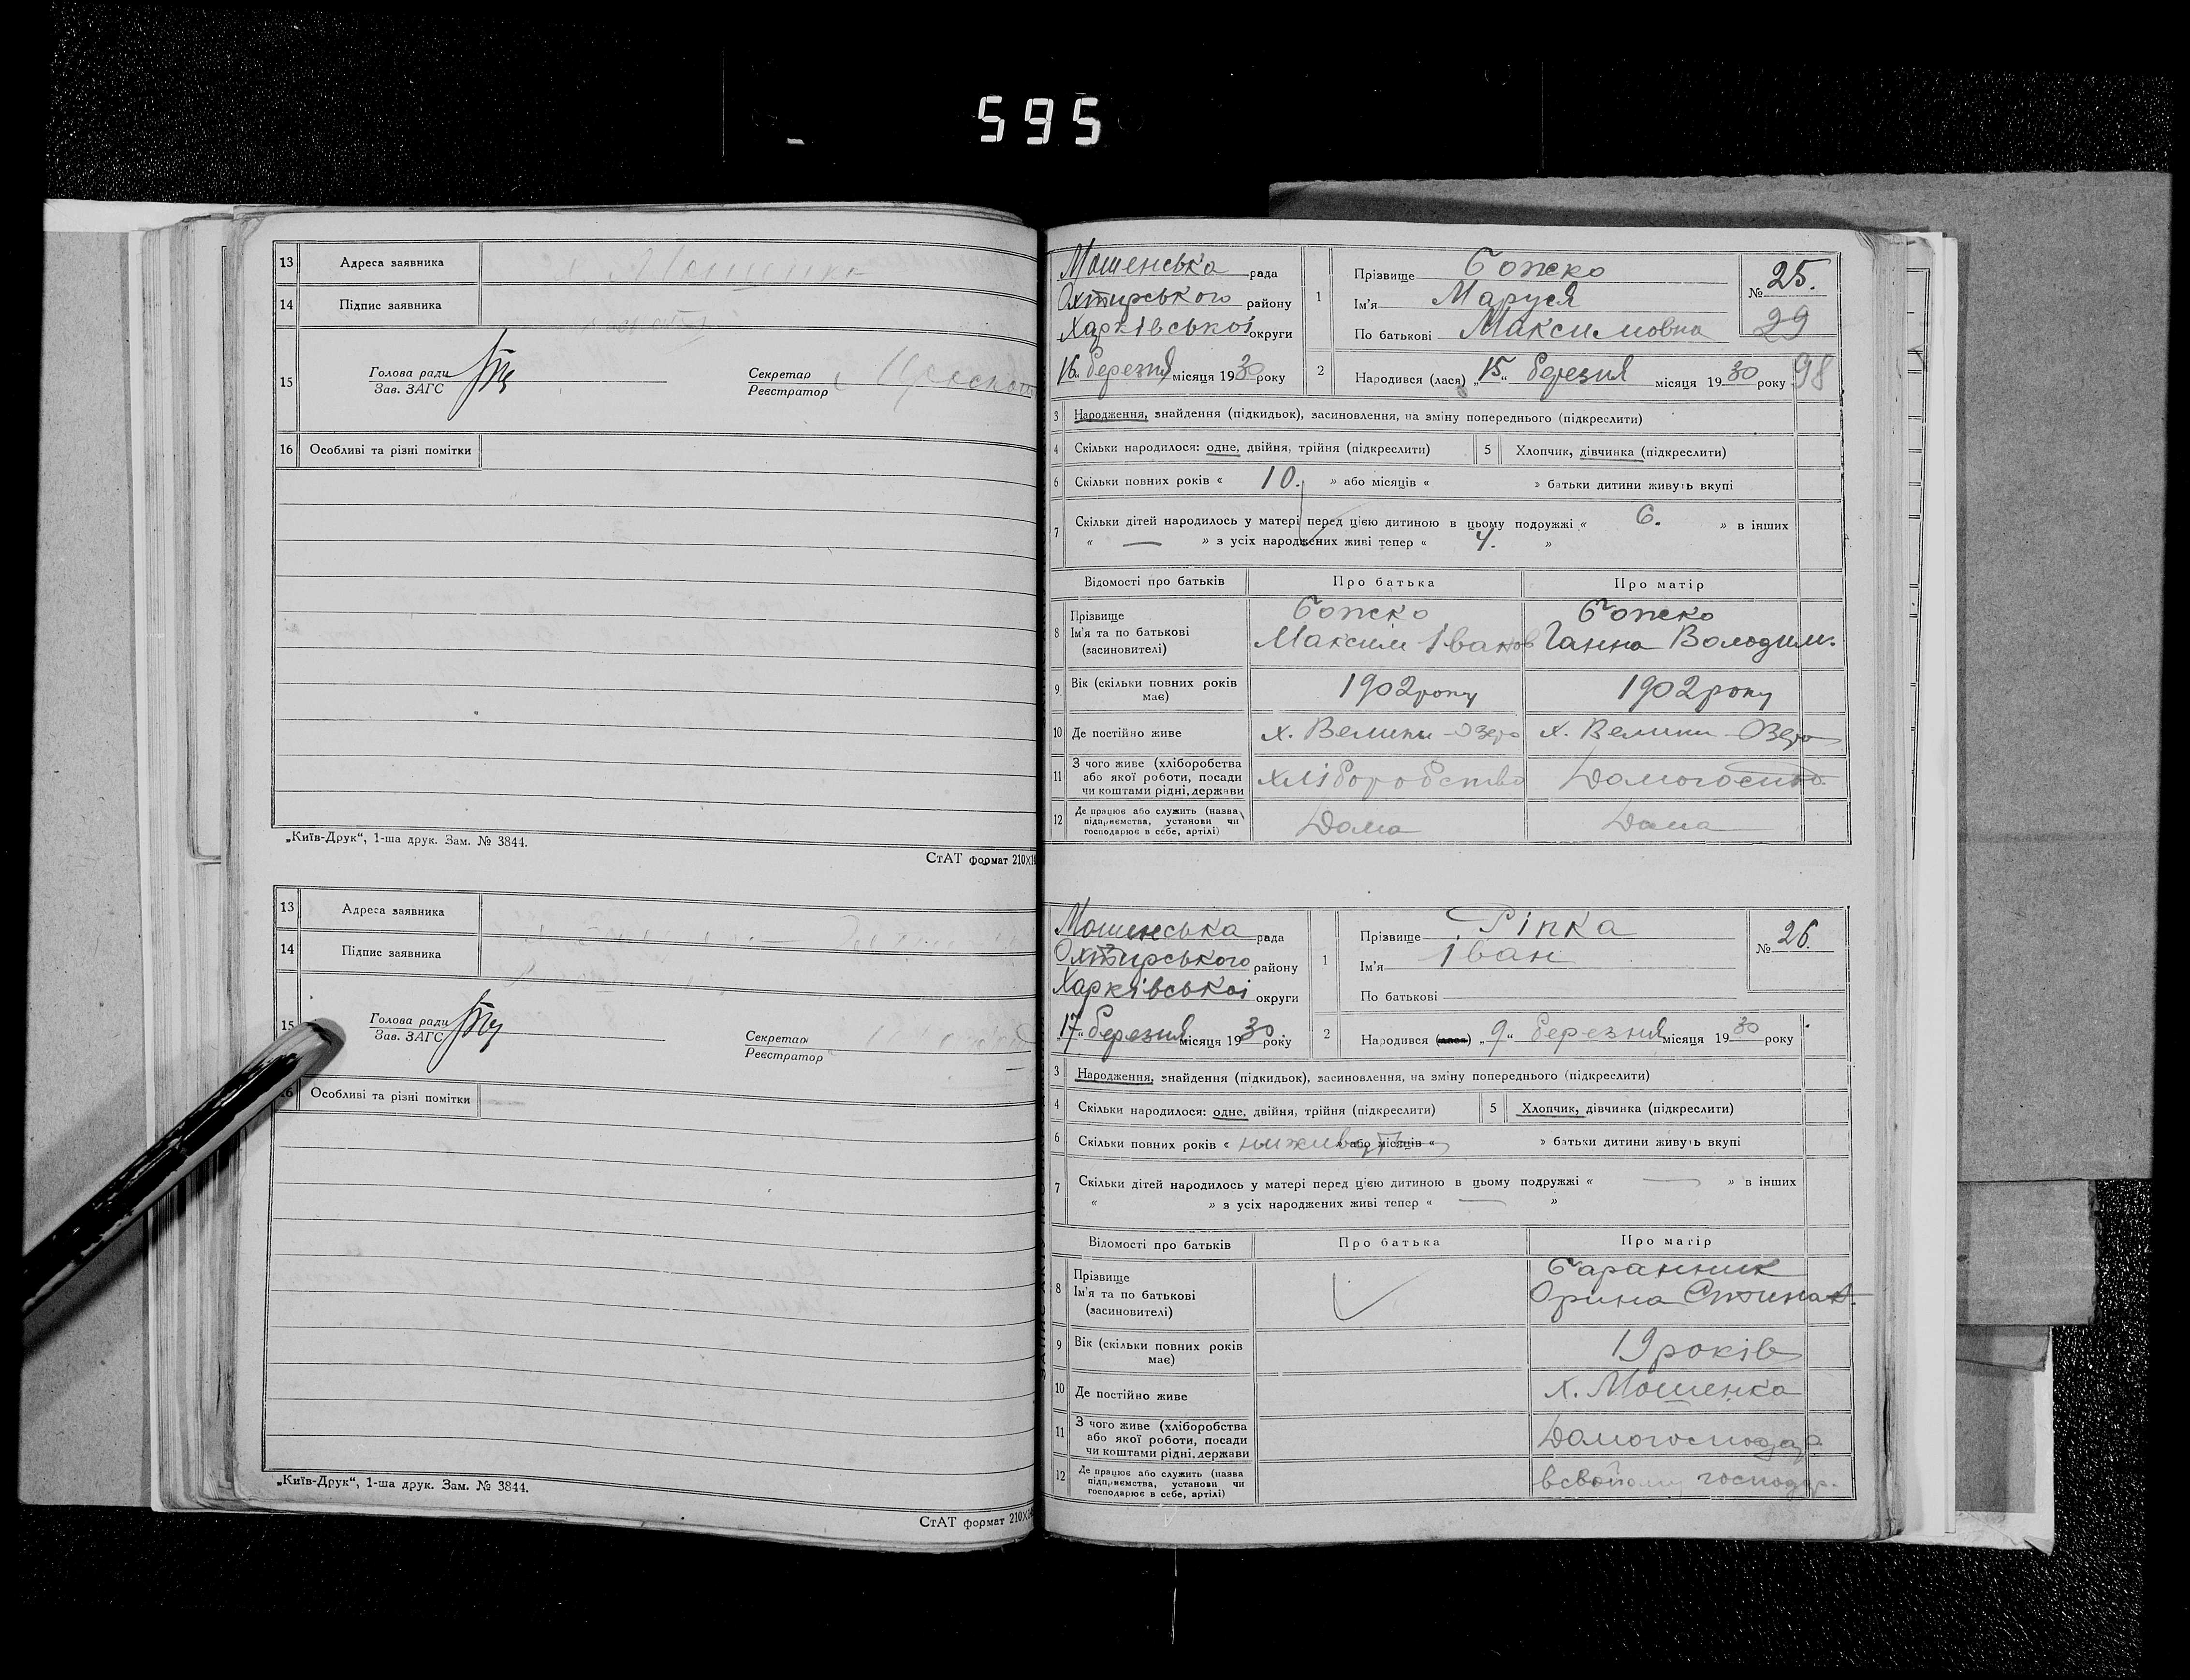 595
13 Адреса заявника х. Мошенка
14 Підпис заявника
15 Голова ради Секретар
Зав. ЗАГС Реєстратор
16 Особливі та різні помітки
„Київ-Друк“, 1-ша друк. Зам. № 3844.
СтАТ формат 210×14
13 Адреса заявника
14 Підпис заявника
15 Голова ради Секретар
Зав. ЗАГС Реєстратор
16 Особливі та різні помітки
„Київ-Друк“, 1-ша друк. Зам. № 3844.
СтАТ формат 210×14
Мошенська рада
Охтирського району
Харківської округи
„16“ березня місяця 1930 року
1 Прізвище Божко
Ім'я Маруся
По батькові Максимовна
№ 25.
29
2 Народився (лася) „15“ березня місяця 1930 року 98
3 Народження, знайдення (підкидьок), засиновлення, на зміну попереднього (підкреслити)
4 Скільки народилося: одне, двійня, трійня (підкреслити) 5 Хлопчик, дівчинка (підкреслити)
6 Скільки повних років « 10. » або місяців « » батьки дитини живуть вкупі
7 Скільки дітей народилось у матері перед цією дитиною в цьому подружжі « 6. » в інших
« — » з усіх народжених живі тепер « 4. »
Відомості про батьків Про батька Про матір
8 Прізвище Божко Божко
Ім'я та по батькові Максим Іванов Ганна Володим.
(засиновителі)
9 Вік (скільки повних років має) 1902 року 1902 року
10 Де постійно живе х. Велики-Озеро х. Велики-Озеро
11 З чого живе (хліборобства або якої роботи, посади чи коштами рідні, держави хліборобство
12 Де працює або служить (назва підприємства, установи чи господарює в себе, артілі) Дома Дома
Мошенська рада
Охтирського району
Харківської округи
„17“ березня місяця 1930 року
1 Прізвище Ріпка
Ім'я Іван
По батькові
№ 26.
2 Народився (лася) „9“ березня місяця 1930 року
3 Народження, знайдення (підкидьок), засиновлення, на зміну попереднього (підкреслити)
4 Скільки народилося: одне, двійня, трійня (підкреслити) 5 Хлопчик, дівчинка (підкреслити)
6 Скільки повних років « » або місяців « » батьки дитини живуть вкупі
7 Скільки дітей народилось у матері перед цією дитиною в цьому подружжі « — » в інших
« » з усіх народжених живі тепер « — »
Відомості про батьків Про батька Про матір
8 Прізвище Баранник
Ім'я та по батькові Орина
(засиновителі)
9 Вік (скільки повних років має) 19 років
10 Де постійно живе х. Мошенка
11 З чого живе (хліборобства або якої роботи, посади чи коштами рідні, держави Домогосподар
12 Де працює або служить (назва підприємства, установи чи господарює в себе, артілі) господар.